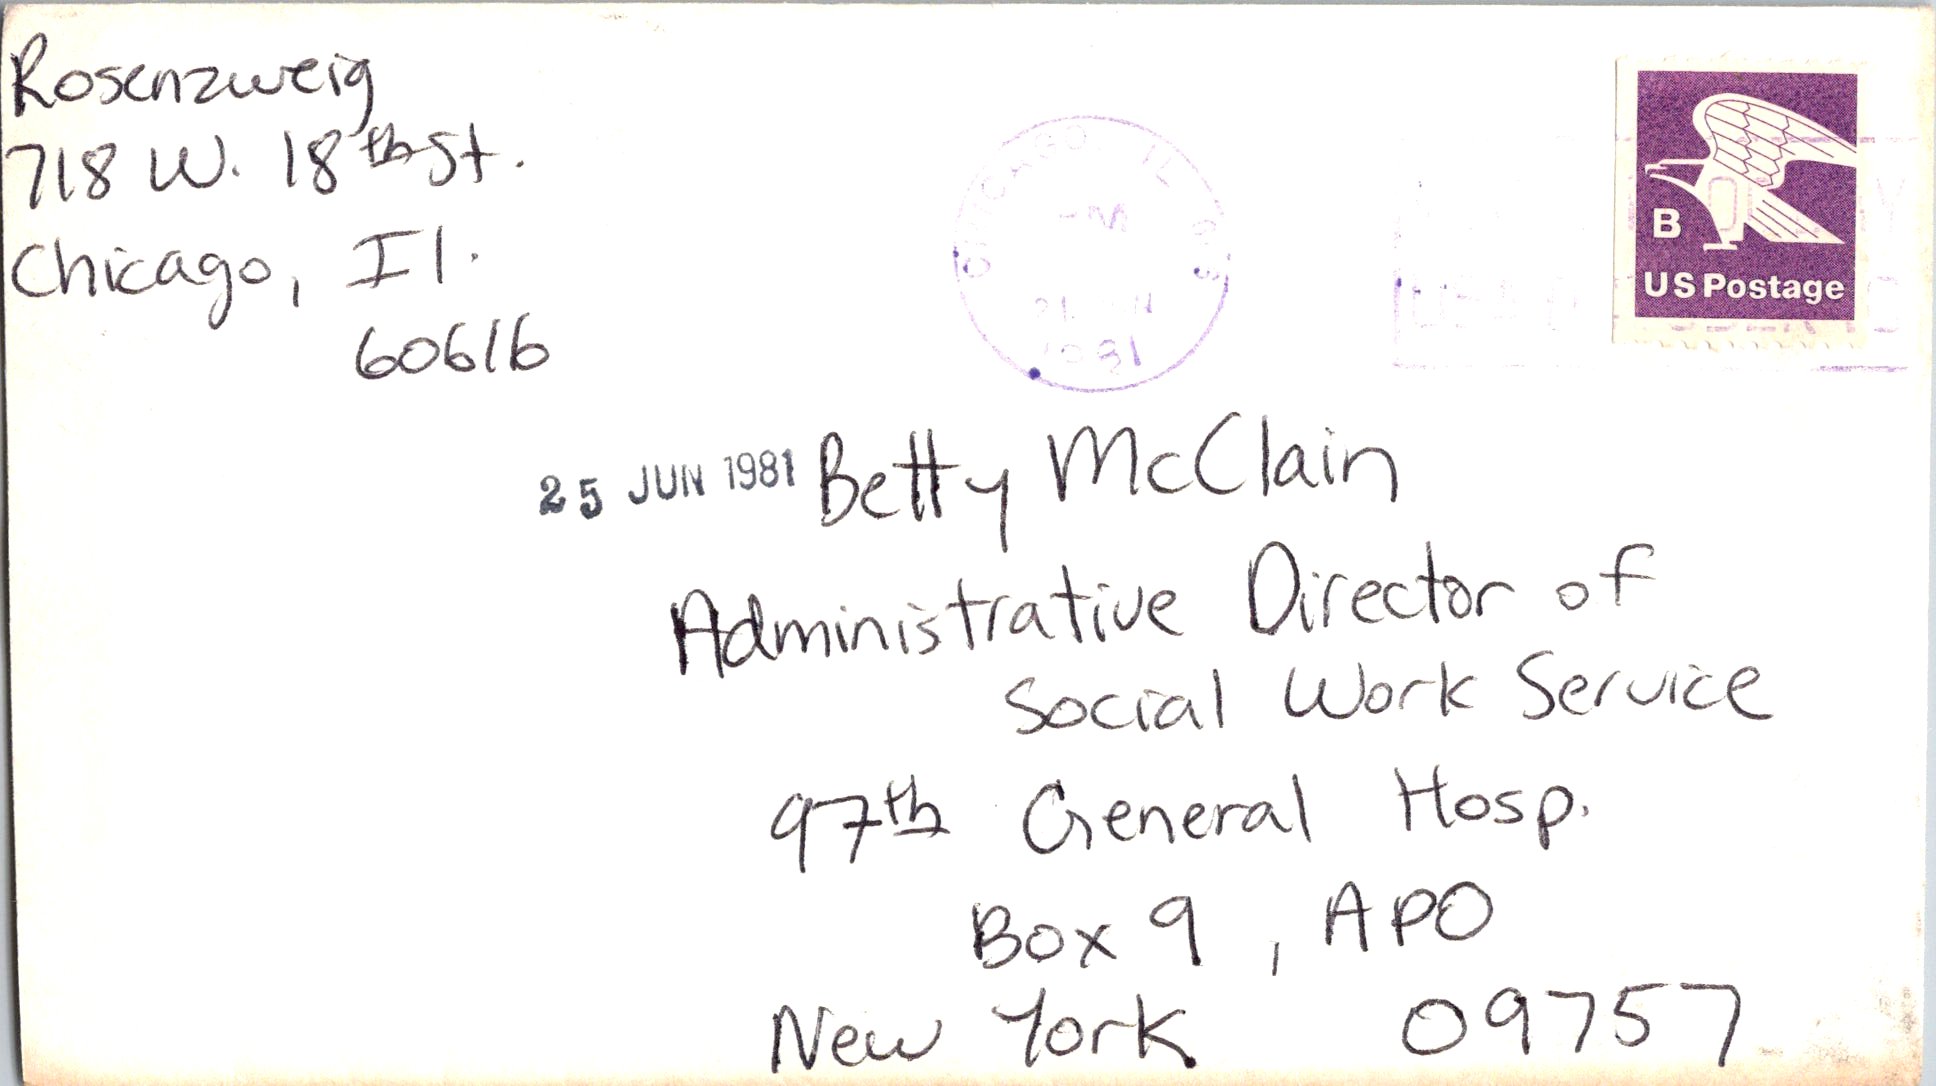 Rosenzweig
718 W. 18th St.
Chicago, Il.
60616
CHICAGO, IL
21 JUN
1981
B
US Postage
25 JUN 1981
Betty McClain
Administrative Director of
Social Work Service
97th General Hosp.
Box 9, APO
New York 09757